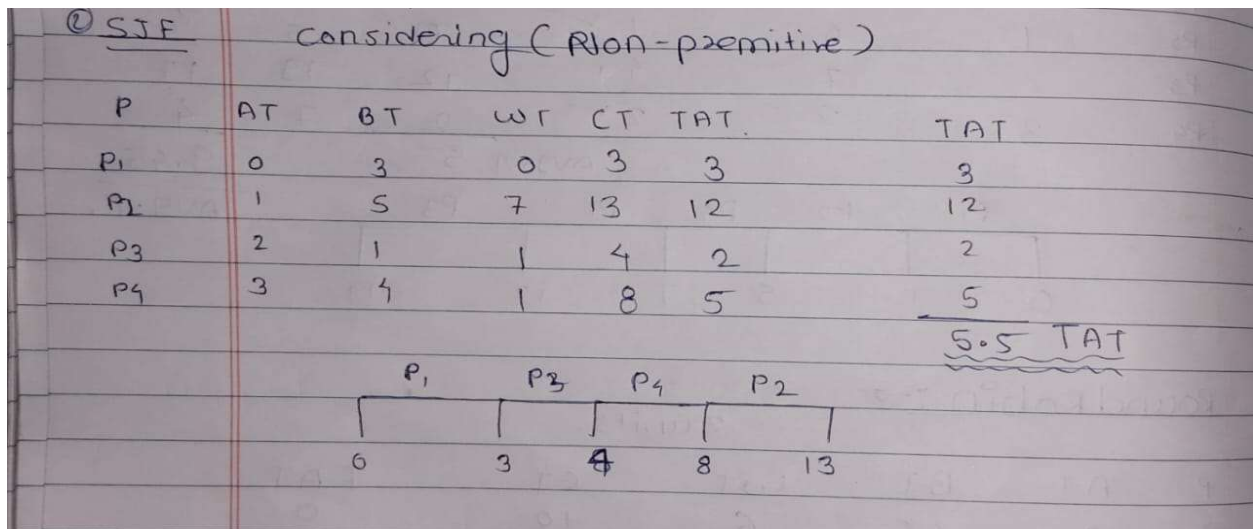 ② SJF considering (Non-premitive)
P AT BT WT CT TAT. TAT
P1 0 3 0 3 3 3
P2 1 5 7 13 12 12
P3 2 1 1 4 2 2
P4 3 4 1 8 5 5
5.5 TAT
P1 P3 P4 P2
0 3 4 8 13